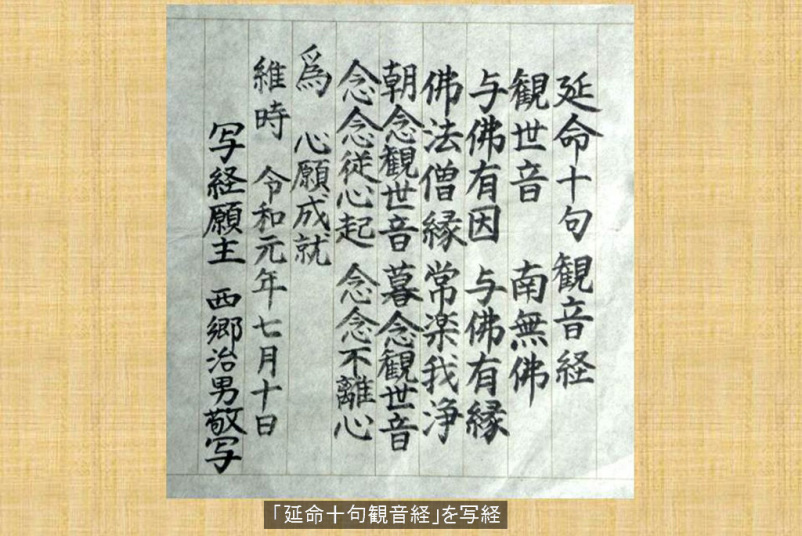 延命十句観音経
観世音 南無佛
与佛有因 与佛有縁
佛法僧縁 常楽我浄
朝念観世音 暮念観世音
念念従心起 念念不離心
爲 心願成就
維時 令和元年七月十日
写経願主 西郷治男敬写
「延命十句観音経」を写経